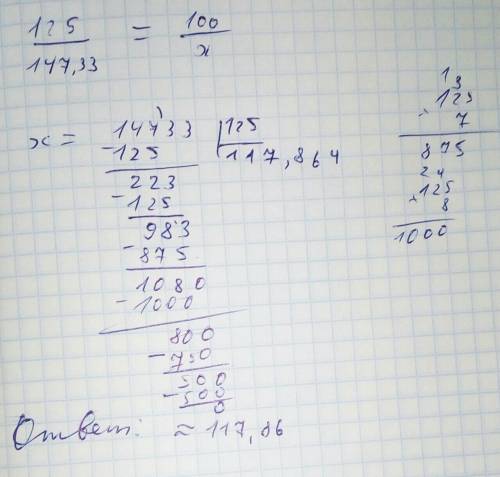 125 = 100
147,33 x
x = 14733 125
-125 117,864
223
-125
983
-875
1080
-1000
800
-750
500
-500
0
Ответ: ≈ 117,86
13
125
× 7
875
24
×125
8
1000